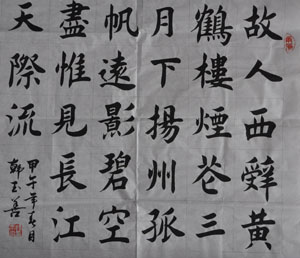 故人西辭黃
鶴樓煙花三
月下揚州孤
帆遠影碧空
盡惟見長江
天際流
甲午年春月
玉善